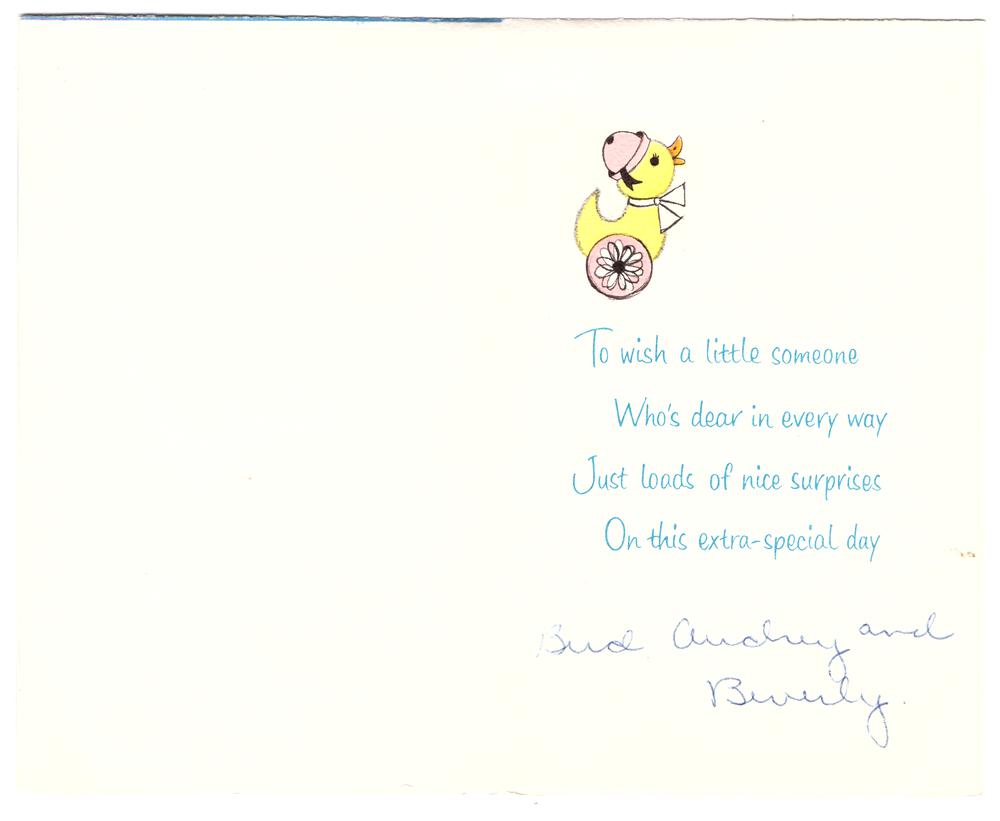 To wish a little someone
Who's dear in every way
Just loads of nice surprises
On this extra-special day
Bud Audrey and
Beverly.